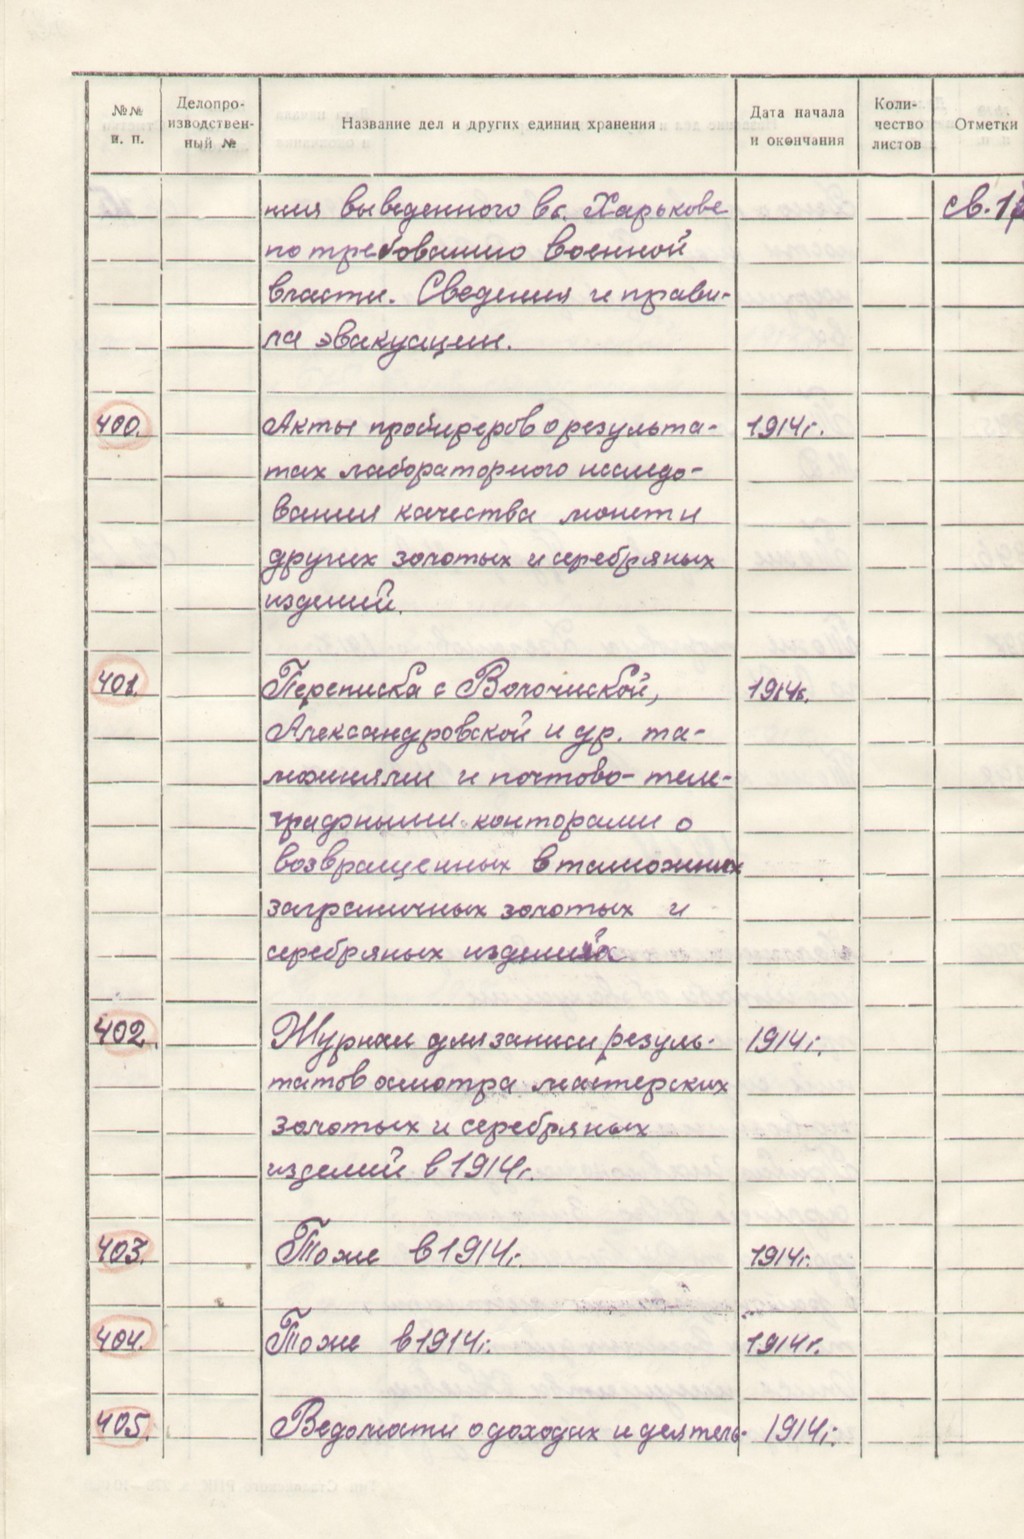 №№ п. п.
Делопро-
изводствен-
ный №
Название дел и других единиц хранения
Дата начала
и окончания
Коли-
чество
листов
Отметки
ния выведенного в г. Харькове св. 1
по требованию военной
власти. Сведения и прави-
ла эвакуации.
400. Акты пробиреров о результа- 1914г.
тах лабораторного исследо-
вания качества монет и
других золотых и серебряных
изделий.
401. Переписка с Волочиской, 1914г.
Александровской и др. та-
можнями и почтово-теле-
графными конторами о
возвращенных в таможнях
заграничных золотых и
серебряных изделиях
402. Журнал для записи резуль- 1914г.
татов осмотра мастерских
золотых и серебряных
изделий в 1914г.
403. Тоже в 1914г. 1914г.
404. Тоже в 1914г. 1914г.
405. Ведомости о доходах и деятель- 1914г.